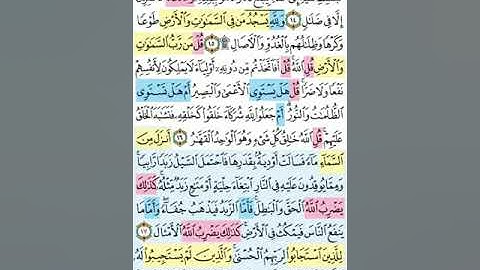 إِلَّا فِى ضَلَٰلٍ ١٤ وَلِلَّهِ يَسْجُدُ مَن فِى ٱلسَّمَٰوَٰتِ وَٱلْأَرْضِ طَوْعًا
وَكَرْهًا وَظِلَٰلُهُم بِٱلْغُدُوِّ وَٱلْءَاصَالِ ۩ ١٥ قُلْ مَن رَّبُّ ٱلسَّمَٰوَٰتِ
وَٱلْأَرْضِ قُلِ ٱللَّهُ قُلْ أَفَٱتَّخَذْتُم مِّن دُونِهِۦٓ أَوْلِيَآءَ لَا يَمْلِكُونَ لِأَنفُسِهِمْ
نَفْعًا وَلَا ضَرًّا قُلْ هَلْ يَسْتَوِى ٱلْأَعْمَىٰ وَٱلْبَصِيرُ أَمْ هَلْ تَسْتَوِى
ٱلظُّلُمَٰتُ وَٱلنُّورُ أَمْ جَعَلُوا۟ لِلَّهِ شُرَكَآءَ خَلَقُوا۟ كَخَلْقِهِۦ فَتَشَٰبَهَ ٱلْخَلْقُ
عَلَيْهِمْ قُلِ ٱللَّهُ خَٰلِقُ كُلِّ شَىْءٍ وَهُوَ ٱلْوَٰحِدُ ٱلْقَهَّٰرُ ١٦ أَنزَلَ مِنَ
ٱلسَّمَآءِ مَآءً فَسَالَتْ أَوْدِيَةٌۢ بِقَدَرِهَا فَٱحْتَمَلَ ٱلسَّيْلُ زَبَدًا رَّابِيًا
وَمِمَّا يُوقِدُونَ عَلَيْهِ فِى ٱلنَّارِ ٱبْتِغَآءَ حِلْيَةٍ أَوْ مَتَٰعٍ زَبَدٌ مِّثْلُهُۥ كَذَٰلِكَ
يَضْرِبُ ٱللَّهُ ٱلْحَقَّ وَٱلْبَٰطِلَ فَأَمَّا ٱلزَّبَدُ فَيَذْهَبُ جُفَآءً وَأَمَّا مَا
يَنفَعُ ٱلنَّاسَ فَيَمْكُثُ فِى ٱلْأَرْضِ كَذَٰلِكَ يَضْرِبُ ٱللَّهُ ٱلْأَمْثَالَ ١٧
لِلَّذِينَ ٱسْتَجَابُوا۟ لِرَبِّهِمُ ٱلْحُسْنَىٰ وَٱلَّذِينَ لَمْ يَسْتَجِيبُوا۟ لَهُۥ